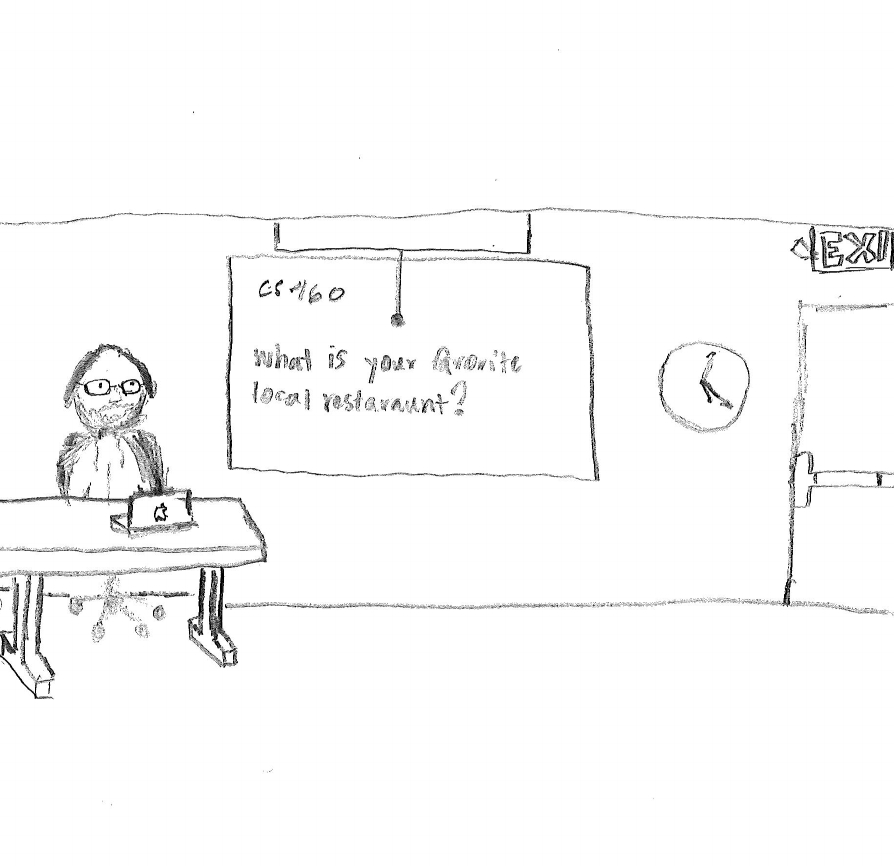 CS 460
EXI
what is your favorite
local restaraunt?